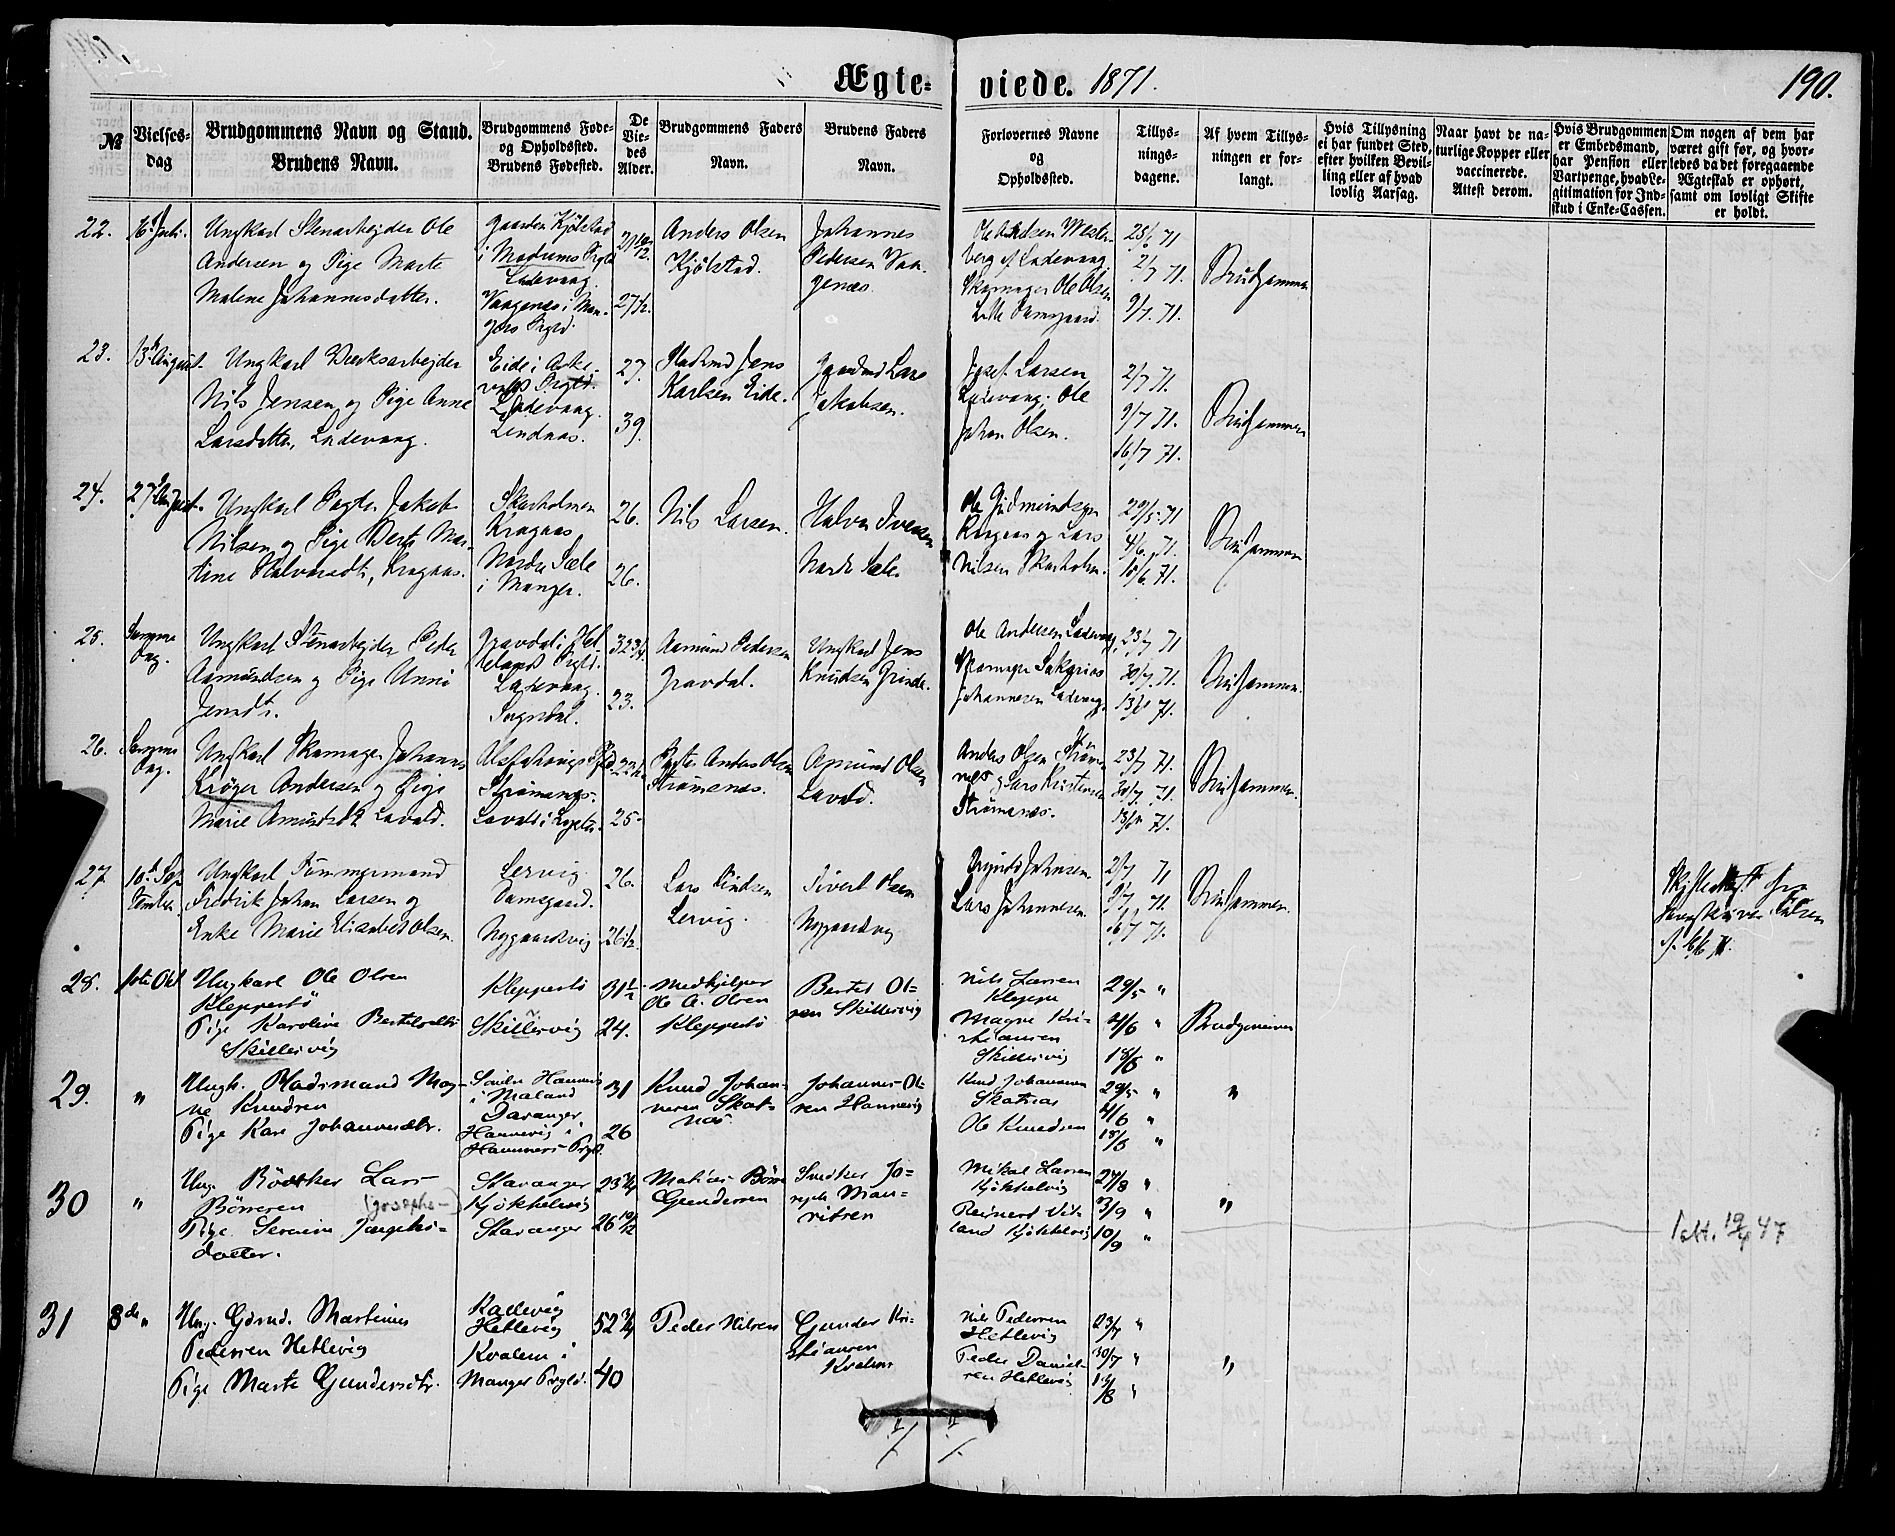 Ægte-viede. 1871. 190.
№
Vielses-dag
Brudgommens Navn og Stand.
Brudens Navn.
Brudgommens Føde- og Opholdssted.
Brudens Fødested.
De Vie-des Alder.
Brudgommens Faders Navn.
Brudens Faders Navn.
Forlovernes Navne og Opholdssted.
Tillys-nings-dagene.
Af hvem Tillys-ningen er for-langt.
Hvis Tillysning ei har fundet Sted, efter hvilken Bevil-ling eller af hvad lovlig Aarsag.
Naar havt de na-turlige Kopper eller vaccinerede. Attest derom.
Hvis Brudgommen er Embedsmand, har Pension eller Vartpenge, hvad Le-gitimation for Ind-skud i Enke-Cassen.
Om nogen af dem har været gift før, og hvor-ledes da det foregaaende Ægteskab er ophørt, samt om lovligt Skifte er holdt.
22. 16 Juli.
Ungkarl Stenarbejder Ole
Andersen og Pige Marte
Malene Johannesdatter.
Gaarden Kjølstad
i Modums Prgld
Ladevaag.
Vaagenæs i Man-
gers Prgld.
27½.
Anders Olsen
Kjølstad.
Johannes
Pedersen Vaa-
genæs.
Ole Andersen Wester-
berg af Ladevaag,
Skomager Ole Olsen
Lille Damsgaard.
2/7 71.
9/7. 71.
Brudgommen
23. 13 August.
Ungkarl Værksarbejder
Nils Jensen og Pige Anne
Larsdatter, Ladevaag.
Eide i Aske-
volds Prgld.
Ladevaag.
Lindaas.
27.
39.
Husmd Jens
Karlsen Eide.
Gaardmd Lars
Jakobsen.
Josef Larsen
Ladevaag; Ole
Johan Olsen.
2/7 71.
9/7 71.
16/7 71.
Brudgommen
24. 27 August.
Ungkarl Jakob
Nilsen og Pige Berte Mar-
tine Halvorsdtr, Kragaas.
Skarholmen
Kragaas
Nordre Sæle
i Manger.
26.
26.
Nils Larsen.
Halvor Iversen
Nordre Sæle.
Ole Gudmundsen
Kragaas og Lars
Nilsen Skarholm.
29/5. 71
4/6. 71.
18/6 71.
Brudgommen
25. Samme Dag.
Ungkarl Stenarbejder Peder
Aamundsen og Pige Unni
Jensdtr.
Gravdal i
Prgld.
Ladevaag.
Sogndal.
32¾.
23.
Aamund Pedersen
Gravdal.
Ungkarl Jens
Knudsen Grinde.
Ole Andersen Ladevaag,
Skomager Sakarias
Johannesen Ladevaag.
23/7 71
30/7. 71.
13/8 71.
Brudgommen.
26. Samme Dag.
Ungkarl Skomager Johannes
Krøger Andersen og Pige
Marie Amundsdtr Lavold.
Alsfahougs Prgld
Strømsnæs.
25
Anders Olsen
Strømsnæs.
Amund Olsen
Lavold.
Anders Olsen Strøm-
næs og Lars Kristensen
Strømsnæs.
23/7 71.
30/7. 71.
13/8 71.
Brudgommen.
27. 10 September.
Ungkarl Tømmermand
Fredrik Johan Larsen og
Enke Marie Elisabet Olsen.
Lervig.
Damsgaard.
Nygaardsvig
26.
26½.
Lars Knudsen
Lervig.
Sivert Olsen
Nygaardsvig
Johnsen.
Lars Johannesen.
2/7 71
9/7 71.
16/7 71.
Brudgommen.
Skifteattest fra
Sorenskriver
28. 1ste Okt
Ungkarl Ole Olsen
Kleppestö
Pige Karoline Bertelsdtr
Skiellevig
Kleppestö
Skiellevig
31½
24.
Medhjelper
Ole A. Olsen
Kleppestö
Bertel Ol-
sen Skillevig
Nils Larsen
Kleppe
Magne Kri-
stiansen
Skillevig
29/5 "
4/6 "
18/6 "
Brudgommen
29. "
Ungk. Pladsmand Mog-
ne Knudsen
Pige Kari Johannesdtr.
i Maland
Davanger
Hannevig i
Hammers Prgld
31
26
Knud Johan-
nesen Skot-
næs
Johannes Ol-
sen Hannevig
Knud Johannesen
Skotnæs
Ole Knudsen
29/5 "
4/6 "
18/6 "
"
30 "
Ung. Bödker Lars
Börresen (Josephs-)
Pige Serine Josephs-
datter.
Stavanger
Kjökkelvig
Stavanger
23¾
26 10/12
Matias Börre
Gundersen
Snedker Jo-
seph Mau-
ritsen
Mikal Larsen
Kjökkelvig
Reinert Vik-
land Kjökkelvig
27/8 "
3/9 "
10/9 "
"
1 att. 19/4 47
31 8de "
Ung. Gdmd. Martinus
Pedersen Hetlevig
Pige Marte Gundersdtr.
Kadevig
Hetlevig
Kvalem i
Manger Prgld.
52¾
40
Peder Nilsen
Gunder Kri-
stiansen
Kvalem
Nils Pedersen
Hetlevig
Peder Daniel-
sen Hetlevig
23/7 "
30/7 "
13/8 "
"